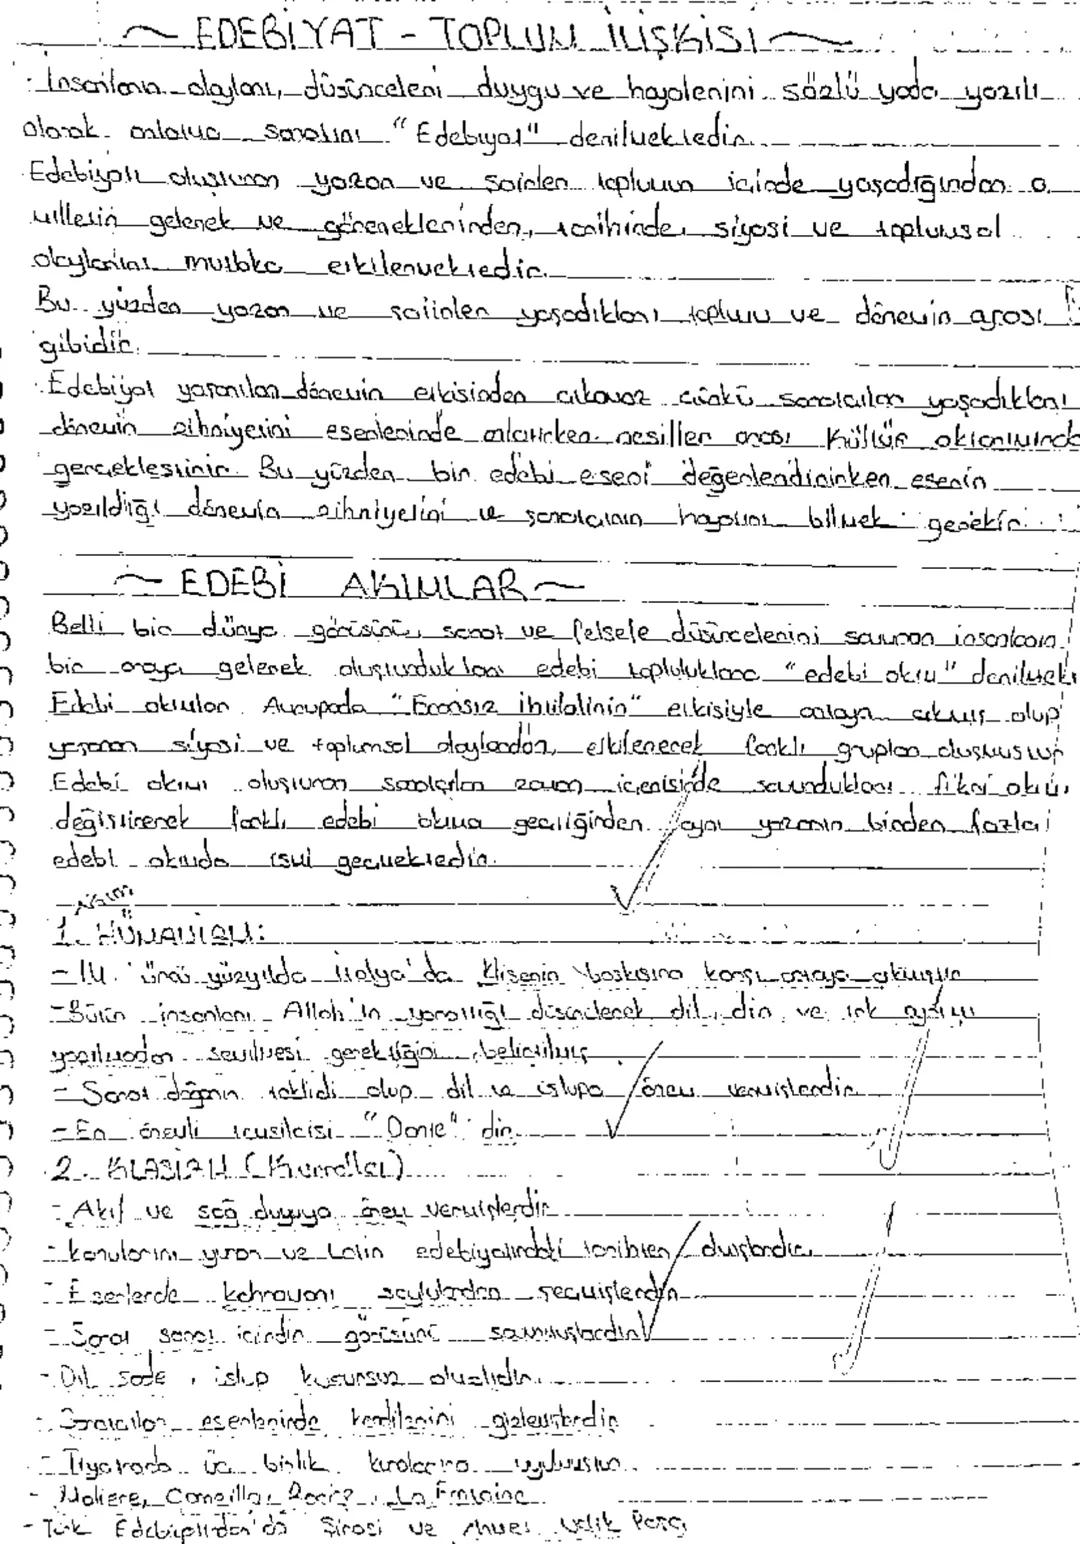 ~ EDEBİYAT - TOPLUM İLİŞKİSİ ~
- İnsanların olayları, düşünceleri duygu ve hayalerinini sözlü yada yazılı
olarak anlatma sanatına "Edebiyat" denilmektedir.
Edebiyatı oluşturan yazar ve şairler toplumun içinde yaşadığından o
milletin gelenek ve göreneklerinden, tarihinde, siyasi ve toplumsal
olaylarını mutlaka etkilenmektedir.
Bu yüzden yazar ve şairler yaşadıkları toplum ve dönemin aynası
gibidir.
Edebiyat yaşanılan dönemin etkisinden çıkamaz çünkü sanatçılar yaşadıkları
dönemin zihniyetini eserlerinde anlatırken nesiller arası kültür aktarımında
gerçekleştirir. Bu yüzden bir edebi eseri değerlendirirken eserin
yazıldığı dönemin zihniyetini ve sanatçının hayatını bilmek gerekir.
~ EDEBİ AKIMLAR ~
Belli bir dünya görüşünü, sanat ve felsefe düşüncelerini savunan insanların
bir araya gelerek oluşturdukları edebi topluluklara "edebi akım" denilmekt
Edebi akımlar Avrupada "Fransız ihtilalinin" etkisiyle ortaya çıkmış olup
yaşanan siyasi ve toplumsal olaylardan etkilenerek farklı gruplar oluşmuştur
Edebi akımı oluşturan sanatçılar zaman içerisinde savundukları fikri akımı
değiştirerek farklı edebi akıma geçtiğinden aynı yazarın birden fazla
edebi akımda ismi geçmektedir.
Akım
1. HÜMANİZM:
- 14. üncü yüzyılda İtalya'da klisenin baskısına karşı ortaya çıkmıştır
- Bütün insanları Allah'ın yarattığı düşünülerek dil, din ve ırk ayrımı
yapılmadan sevilmesi gerektiğini belirtilmiş
- Sanat doğanın taklidi olup dil ve üslupa önem vermişlerdir
- En önemli temsilcisi "Dante" dir.
2. KLASİZM (Kurallcı)
- Akıl ve sağ duyuya önem vermişlerdir
- konularını yunan ve Latin edebiyatındaki tarihten
- Eserlerde kahramanı soylulardan seçmişlerdir
- Sanat sanat içindir görüşünü savunmuşlardır
- Dil sade, üslup kusursuz olmalıdır.
- Sanatçılar eserlerinde kendilerini gizlemişlerdir
- Tiyatroda üç birlik kuralarına uyulmuştur.
- Moliere, Corneille, Racine, La Fontaine
- Türk Edebiyatından'da Şinasi ve Ahmet Vefik Paşa